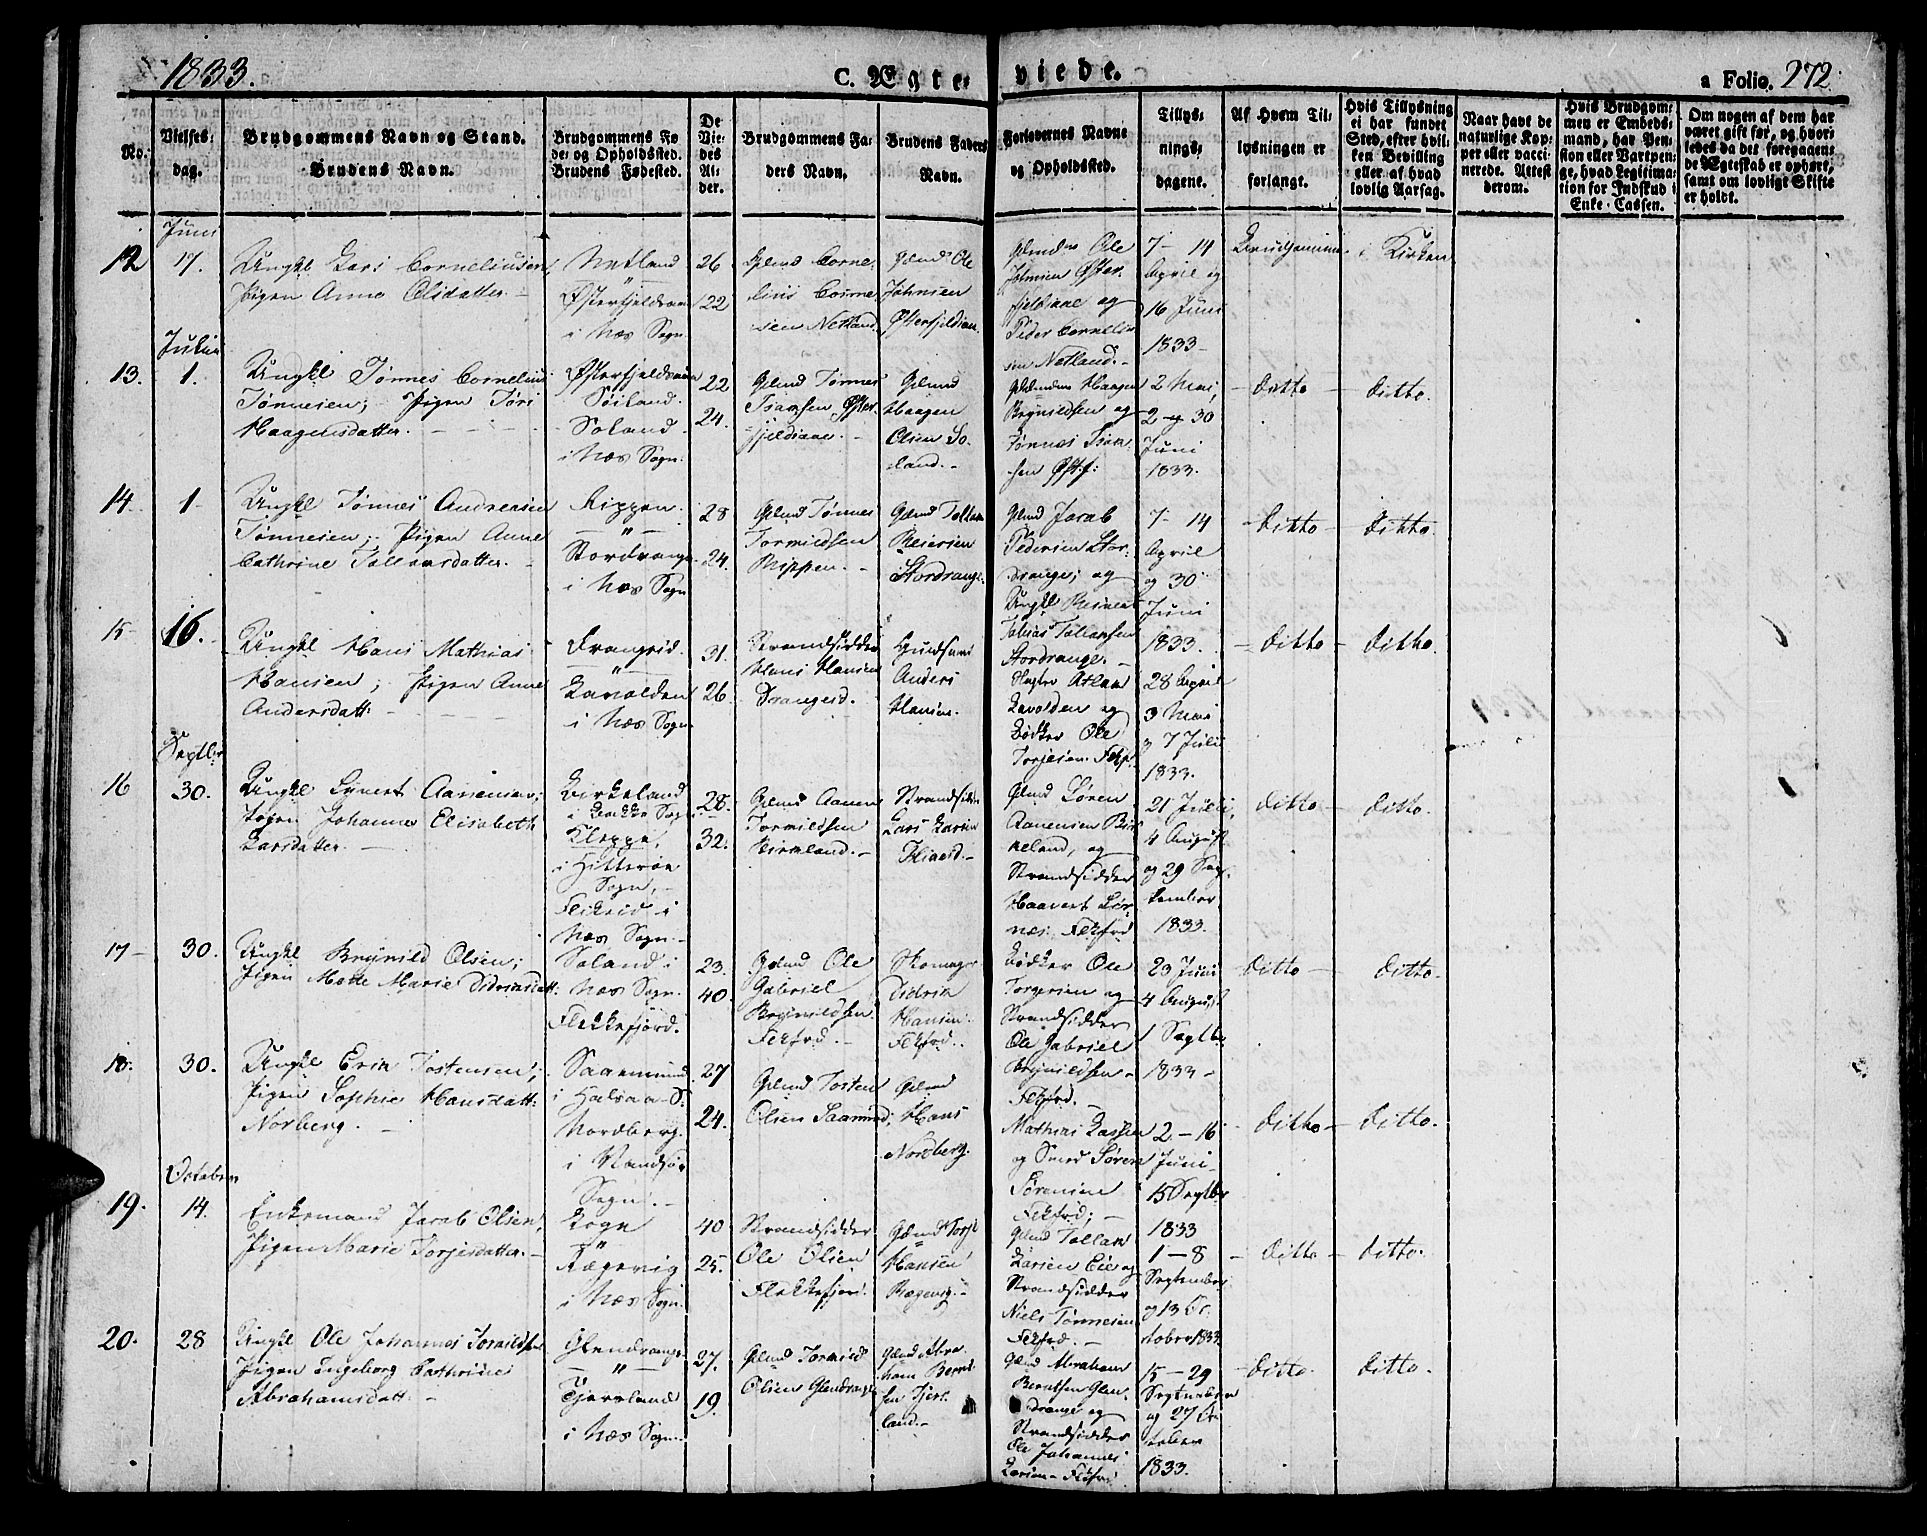 1833.
C. Ægte-
viede.
a Folio. 272.
No.
Vielses-
dag.
Brudgommens Navn og Stand.
Brudens Navn.
Brudgommens Fø-
de- og Opholdssted.
Brudens Fødested.
De
Vie-
des
Al-
der.
Brudgommens Fa-
ders Navn.
Brudens Faders
Navn.
Forlovernes Navne
og Opholdssted.
Tillys-
nings-
dagene.
Af Hvem Til-
lysningen er
forlangt.
Hvis Tillysning
ei har fundet
Sted, efter hvil-
ken Bevilling
eller af hvad
lovlig Aarsag.
Naar havt de
naturlige Kop-
per eller vacci-
nerede. Attest
derom.
Hvis Brudgom-
men er Embeds-
mand, har Pen-
sion eller Vartpen-
ge, hvad Legitima-
tion for Indskud i
Enke-Cassen.
Om nogen af dem har
været gift før, og hvor-
ledes da det foregaaen-
de Ægteskab er ophørt,
samt om lovligt Skifte
er holdt.
Juni
12
17.
Ungkl Lars Corneliusen,
Pigen Anne Olsdatter.
Netland
"
Østerfjeldsaae
i Næs Sogn.
26
22
Glmd Corne-
lius
Netland.
Glmd Ole
Johnsen
Østerfjeldsaae
Glmd Ole
Johnsen Øster-
fjeldsaae og
Peder Corneliu-
sen Netland.
7 - 14
April og
16 Juni
1833
Brudgommen
i Kirken
Julii
13.
1.
Ungkl Tønnes Cornelius
Tønnesen; Pigen Tøri
Haagensdatter.
Østerfjeldsaae
Soland
i Næs Sogn.
22
24.
Glmd Tønnes
Øster-
fjeldsaae.
Glmd
Haagen
Olsen So-
land.
Glmd Haagen
Brynildsen og
Tønnes
2 Mai,
2 og 30
Juni
1833.
Ditto
Ditto.
14
1
Ungkl Tønnes Andreasen
Tønnesen; Pigen Anne
Cathrine Tollarsdatter.
Rippen
"
Stordrange
i Næs Sogn
28
24.
Glmd Tønnes
Tormildsen
Rippen.
Glmd Tollar
Reiersen
Stordrange.
Glmd Jacob
Pedersen Stor-
drange; og
Ungkl
Tobias Tollarsen
Stordrange.
7 - 14
April
og 30
Juni
1833.
Ditto
Ditto.
15
16.
Ungkl Hans Mathias
Hansen; Pigen Anne
Andersdatt:
Drangeid.
"
Lavolden
i Næs Sogn
31.
26
Strandsidder
Hans Hansen
Drangeid.
Huusmand
Anders
Hansen.
Atlak
Lavolden og
Bødker Ole
Torjesen
28 April
3 Mai
og 7 Julii
1833.
Ditto
Ditto.
Septbr
16
30.
Ungkl Syvert Aanensen;
Pigen Johanne Elisabeth
Larsdatter
Birkeland
i Bakke Sogn
Kleppe,
i Hitterøe
Sogn,
Flikeid i
Næs Sogn.
28.
32.
Glmd Aanen
Tormildsen
Birkeland.
Strandsidder
Lars Larsen
Flikeid.
Glmd Søren
Aanensen Bir-
keland, og
Strandsidder
Haavart
Fekfrd
21 Julii,
4 August
og 29 Sep-
tember
1833.
Ditto
Ditto.
17
30.
Ungkl Brynild Olsen;
Pigen Mette Marie Didriksdatt:
Soland i
Næs Sogn.
Flekkefjord.
23.
40.
Glmd Ole
Gabriel
Brynildsen
Fekfrd.
Skomager
Didrik
Hansen
Fekfrd.
Bødker Ole
Torgersen og
Strandsidder
Ole Gabriel
Brynildsen
Fekfrd.
23 Juni
4 August
1 Septbr
1833
Ditto
Ditto.
18.
30.
Ungkl Erik Tostensen;
Pigen Sophie Hansdatt:
Norberg.
Saamund
i Halsaa S:
Nordberg
i Randsø
Sogn.
27
24.
Glmd Tosten
Olsen Saamund;
Glmd
Hans
Nordberg.
Mathias Lassen
og Smed Søren
Sørensen
Fekfrd;
2 - 16
Juni
15 Septbr
1833
Ditto
Ditto.
October
19.
14.
Enkemand Jacob Olsen,
Pigen Marie Torjesdatter.
Loge
"
Rægevig
i Næs Sogn.
40
25.
Strandsidder
Ole Olsen
Flekkefjord.
Glmd Torje
Hansen
Rægevig.
Glmd Tollak
Larsen Eie og
Strandsidder
Niels Tønnesen
Fekfrd.
1 - 8
September
og 13 Oc-
tober 1833
Ditto
Ditto.
20.
28
Ungkl Ole Johannes Tormildsen
Pigen Ingeborg Cathrine
Abrahamsdatt:
Glendrange
"
Tjersland
i Næs Sogn.
27.
19.
Glmd Tormild
Olsen Glendrange
Glmd Abra-
ham Bernt-
sen Tjers-
land.
Glmd Abraham
Berntsen Glen-
drange og
Strandsidder
Ole Johannes
Larsen Fekfrd
15 - 29
September
og 27 Oc-
tober
1833.
Ditto
Ditto.